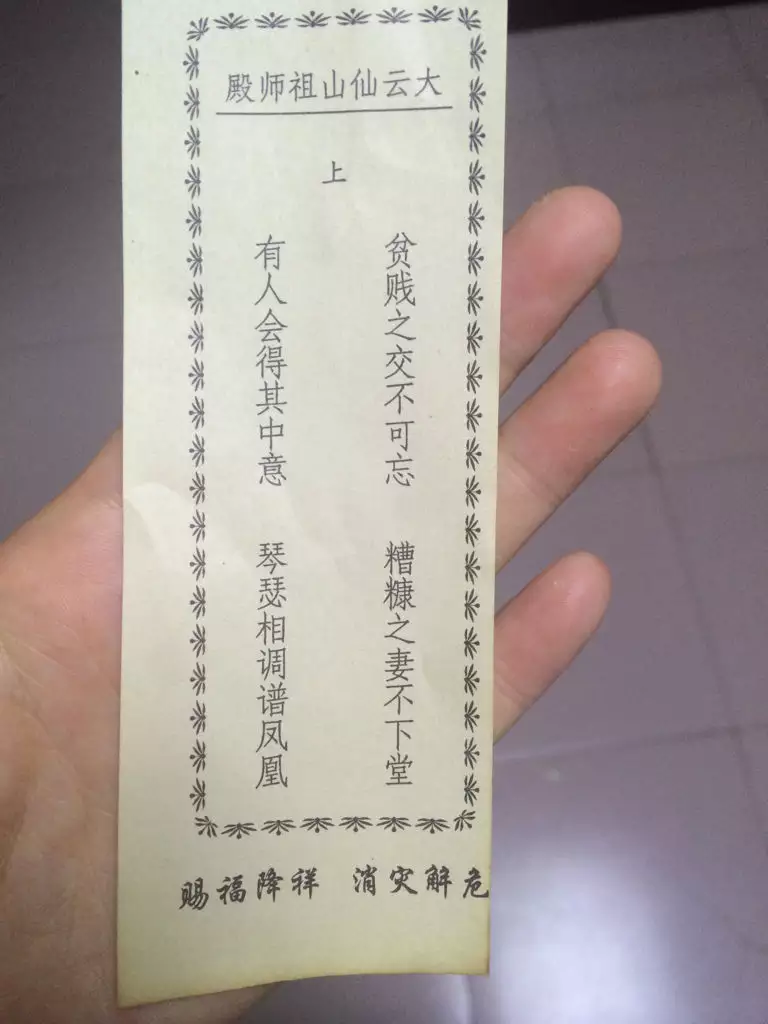 大云仙山祖师殿
上
贫贱之交不可忘 糟糠之妻不下堂
有人会得其中意 琴瑟相调谱凤凰
赐福降祥 消灾解危